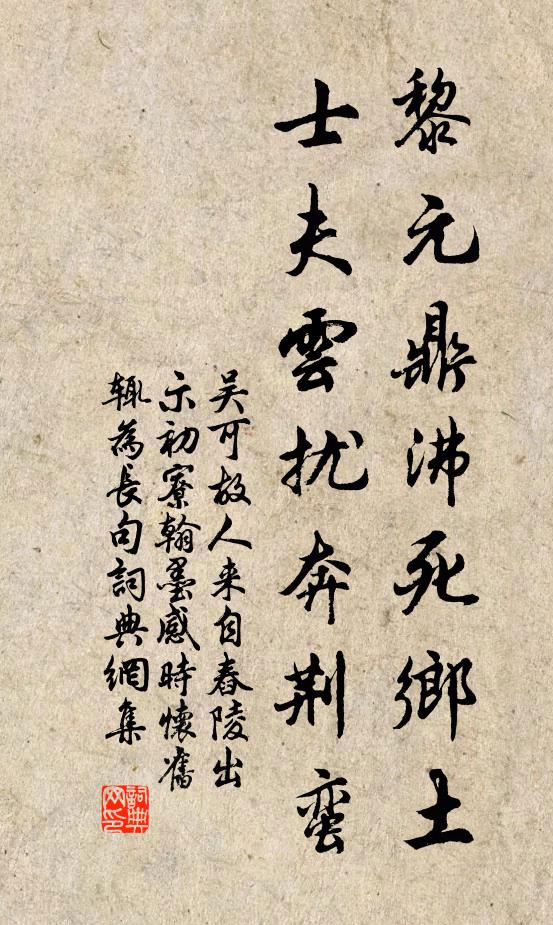 黎元鼎沸死鄉土
士夫雲扰奔荆蛮
吴可故人来自舂陵出
示初寮翰墨感時懷舊
辄為長句詞典網集
詞典网印